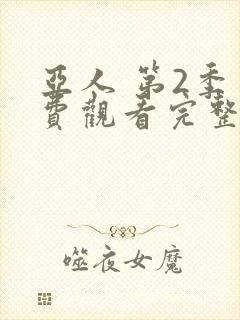 亞人 第2季
費觀看完整
噬夜女魔